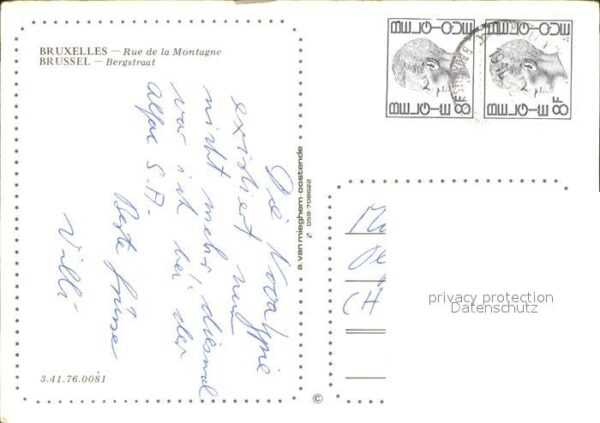 BRUXELLES — Rue de la Montagne
BRUSSEL — Bergstraat
Die Novalpie
existiert nun
nicht mehr diesmal
war ich bei der
Alpe S.A.
Beste Grüsse
Villi
3.41.76.0081
a. van mieghem oostende
059-706622
©
BELGIË-BELGIQUE
8F
BELGIË-BELGIQUE
8F
CH
privacy protection
Datenschutz